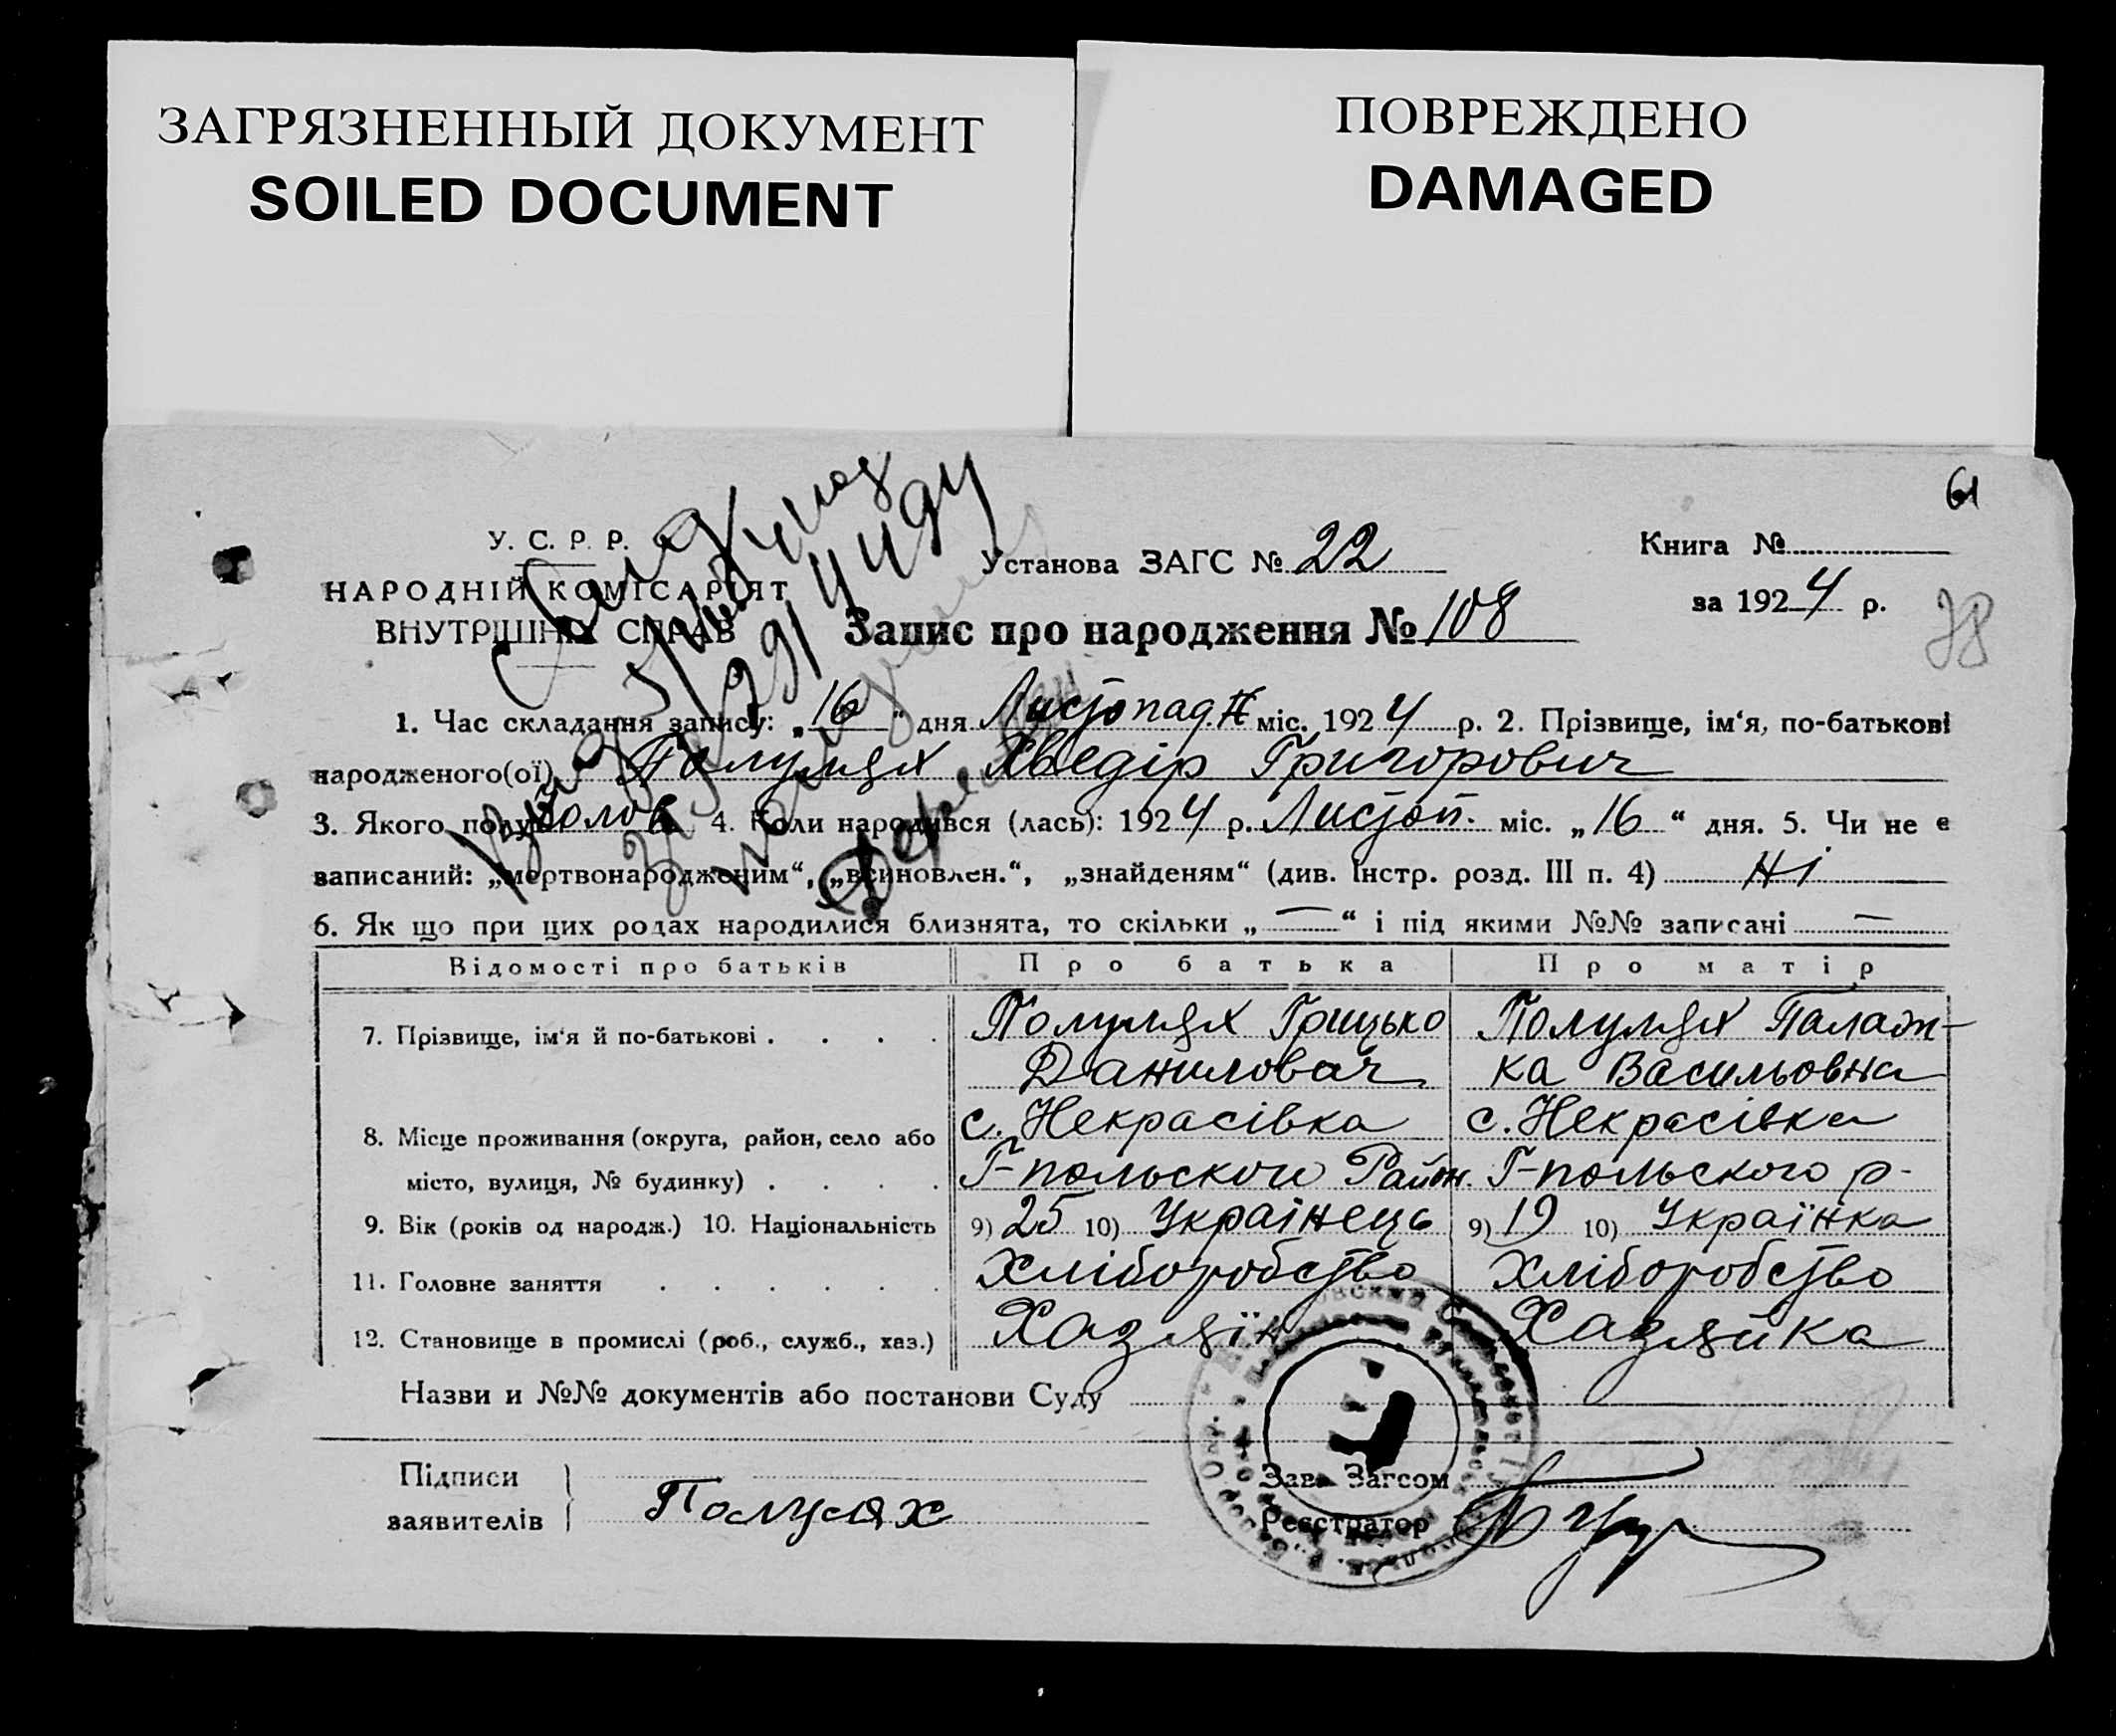 ЗАГРЯЗНЕННЫЙ ДОКУМЕНТ
SOILED DOCUMENT
ПОВРЕЖДЕНО
DAMAGED
61
У. С. Р. Р.
НАРОДНІЙ КОМІСАРІЯТ
ВНУТРІШНІХ СПРАВ
Установа ЗАГС № 22
Книга №
за 1924 р.
Запис про народження № 108
78
1. Час складання запису: „16“ дня Листопад. міс. 1924 р. 2. Прізвище, ім‘я, по-батькові
народженого(ої) Полулях Хведір Григорович
3. Якого полу Чолов. 4. Коли народився (лась): 1924 р. Листоп. міс. „16“ дня. 5. Чи не є
записаний: „мертвонародженим“, „всиновлен.“, „знайденям“ (див. Інстр. розд. III п. 4) Ні
6. Як що при цих родах народилися близнята, то скільки „—“ і під якими №№ записані —
Відомості про батьків Про батька Про матір
7. Прізвище, ім‘я й по-батькові . . . . Полулях Грицько Полулях Палаж-
Данилович ка Васильовна
8. Місце проживання (округа, район, село або с. Некрасівка с. Некрасівка
місто, вулиця, № будинку) . . . . Г-польского Район. Г-польского р-
9. Вік (років од народж.) 10. Національність 9) 25 10) Українець 9) 19 10) Українка
11. Головне заняття . . . . . . Хліборобство Хліборобство
12. Становище в промислі (роб., служб., хаз.) Хазяїн Хазяйка
Назви и №№ документів або постанови Суду
Підписи
заявителів
Полулях
Зав. Загсом
Реєстратор